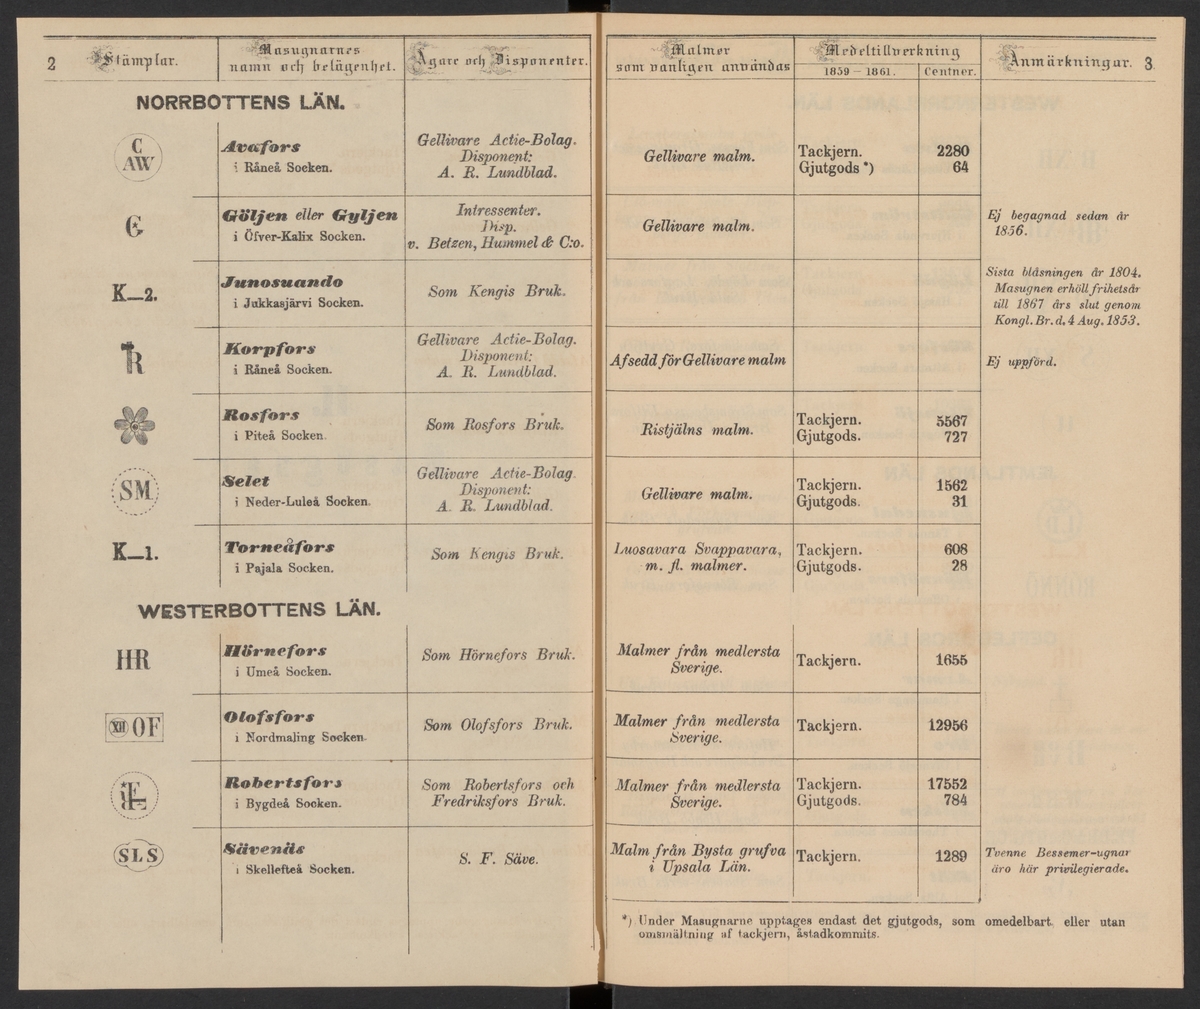 2
Stämplar.
Masugnarnes
namn och belägenhet.
Ägare och Disponenter.
Malmer
som vanligen användas
Medeltillverkning
1859 – 1861.
Centner.
Anmärkningar.
3
NORRBOTTENS LÄN.
C
AW
Avafors
i Råneå Socken.
Gellivare Actie-Bolag.
Disponent:
A. R. Lundblad.
Gellivare malm.
Tackjern.
2280
Gjutgods *)
64
G
Göljen eller Gyljen
i Öfver-Kalix Socken.
Intressenter.
Disp.
v. Betzen, Hummel & C:o.
Gellivare malm.
Ej begagnad sedan år
1856.
K—2.
Junosuando
i Jukkasjärvi Socken.
Som Kengis Bruk.
Sista blåsningen år 1804.
Masugnen erhöll frihetsår
till 1867 års slut genom
Kongl. Br. d. 4 Aug. 1853.
R
Korpfors
i Råneå Socken.
Gellivare Actie-Bolag.
Disponent:
A. R. Lundblad.
Afsedd för Gellivare malm
Ej uppförd.
Rosfors
i Piteå Socken.
Som Rosfors Bruk.
Ristjälns malm.
Tackjern.
5567
Gjutgods.
727
SM
Selet
i Neder-Luleå Socken.
Gellivare Actie-Bolag.
Disponent:
A. R. Lundblad.
Gellivare malm.
Tackjern.
1562
Gjutgods.
31
K—1.
Torneåfors
i Pajala Socken.
Som Kengis Bruk.
Luosavara Svappavara,
m. fl. malmer.
Tackjern.
608
Gjutgods.
28
WESTERBOTTENS LÄN.
HR
Hörnefors
i Umeå Socken.
Som Hörnefors Bruk.
Malmer från medlersta
Sverige.
Tackjern.
1655
XII OF
Olofsfors
i Nordmaling Socken.
Som Olofsfors Bruk.
Malmer från medlersta
Sverige.
Tackjern.
12956
Robertsfors
i Bygdeå Socken.
Som Robertsfors och
Fredriksfors Bruk.
Malmer från medlersta
Sverige.
Tackjern.
17552
Gjutgods.
784
SLS
Sävenäs
i Skellefteå Socken.
S. F. Säve.
Malm från Bysta grufva
i Upsala Län.
Tackjern.
1289
Tvenne Bessemer-ugnar
äro här privilegierade.
*) Under Masugnarne upptages endast det gjutgods, som omedelbart, eller utan
omsmältning af tackjern, åstadkommits.